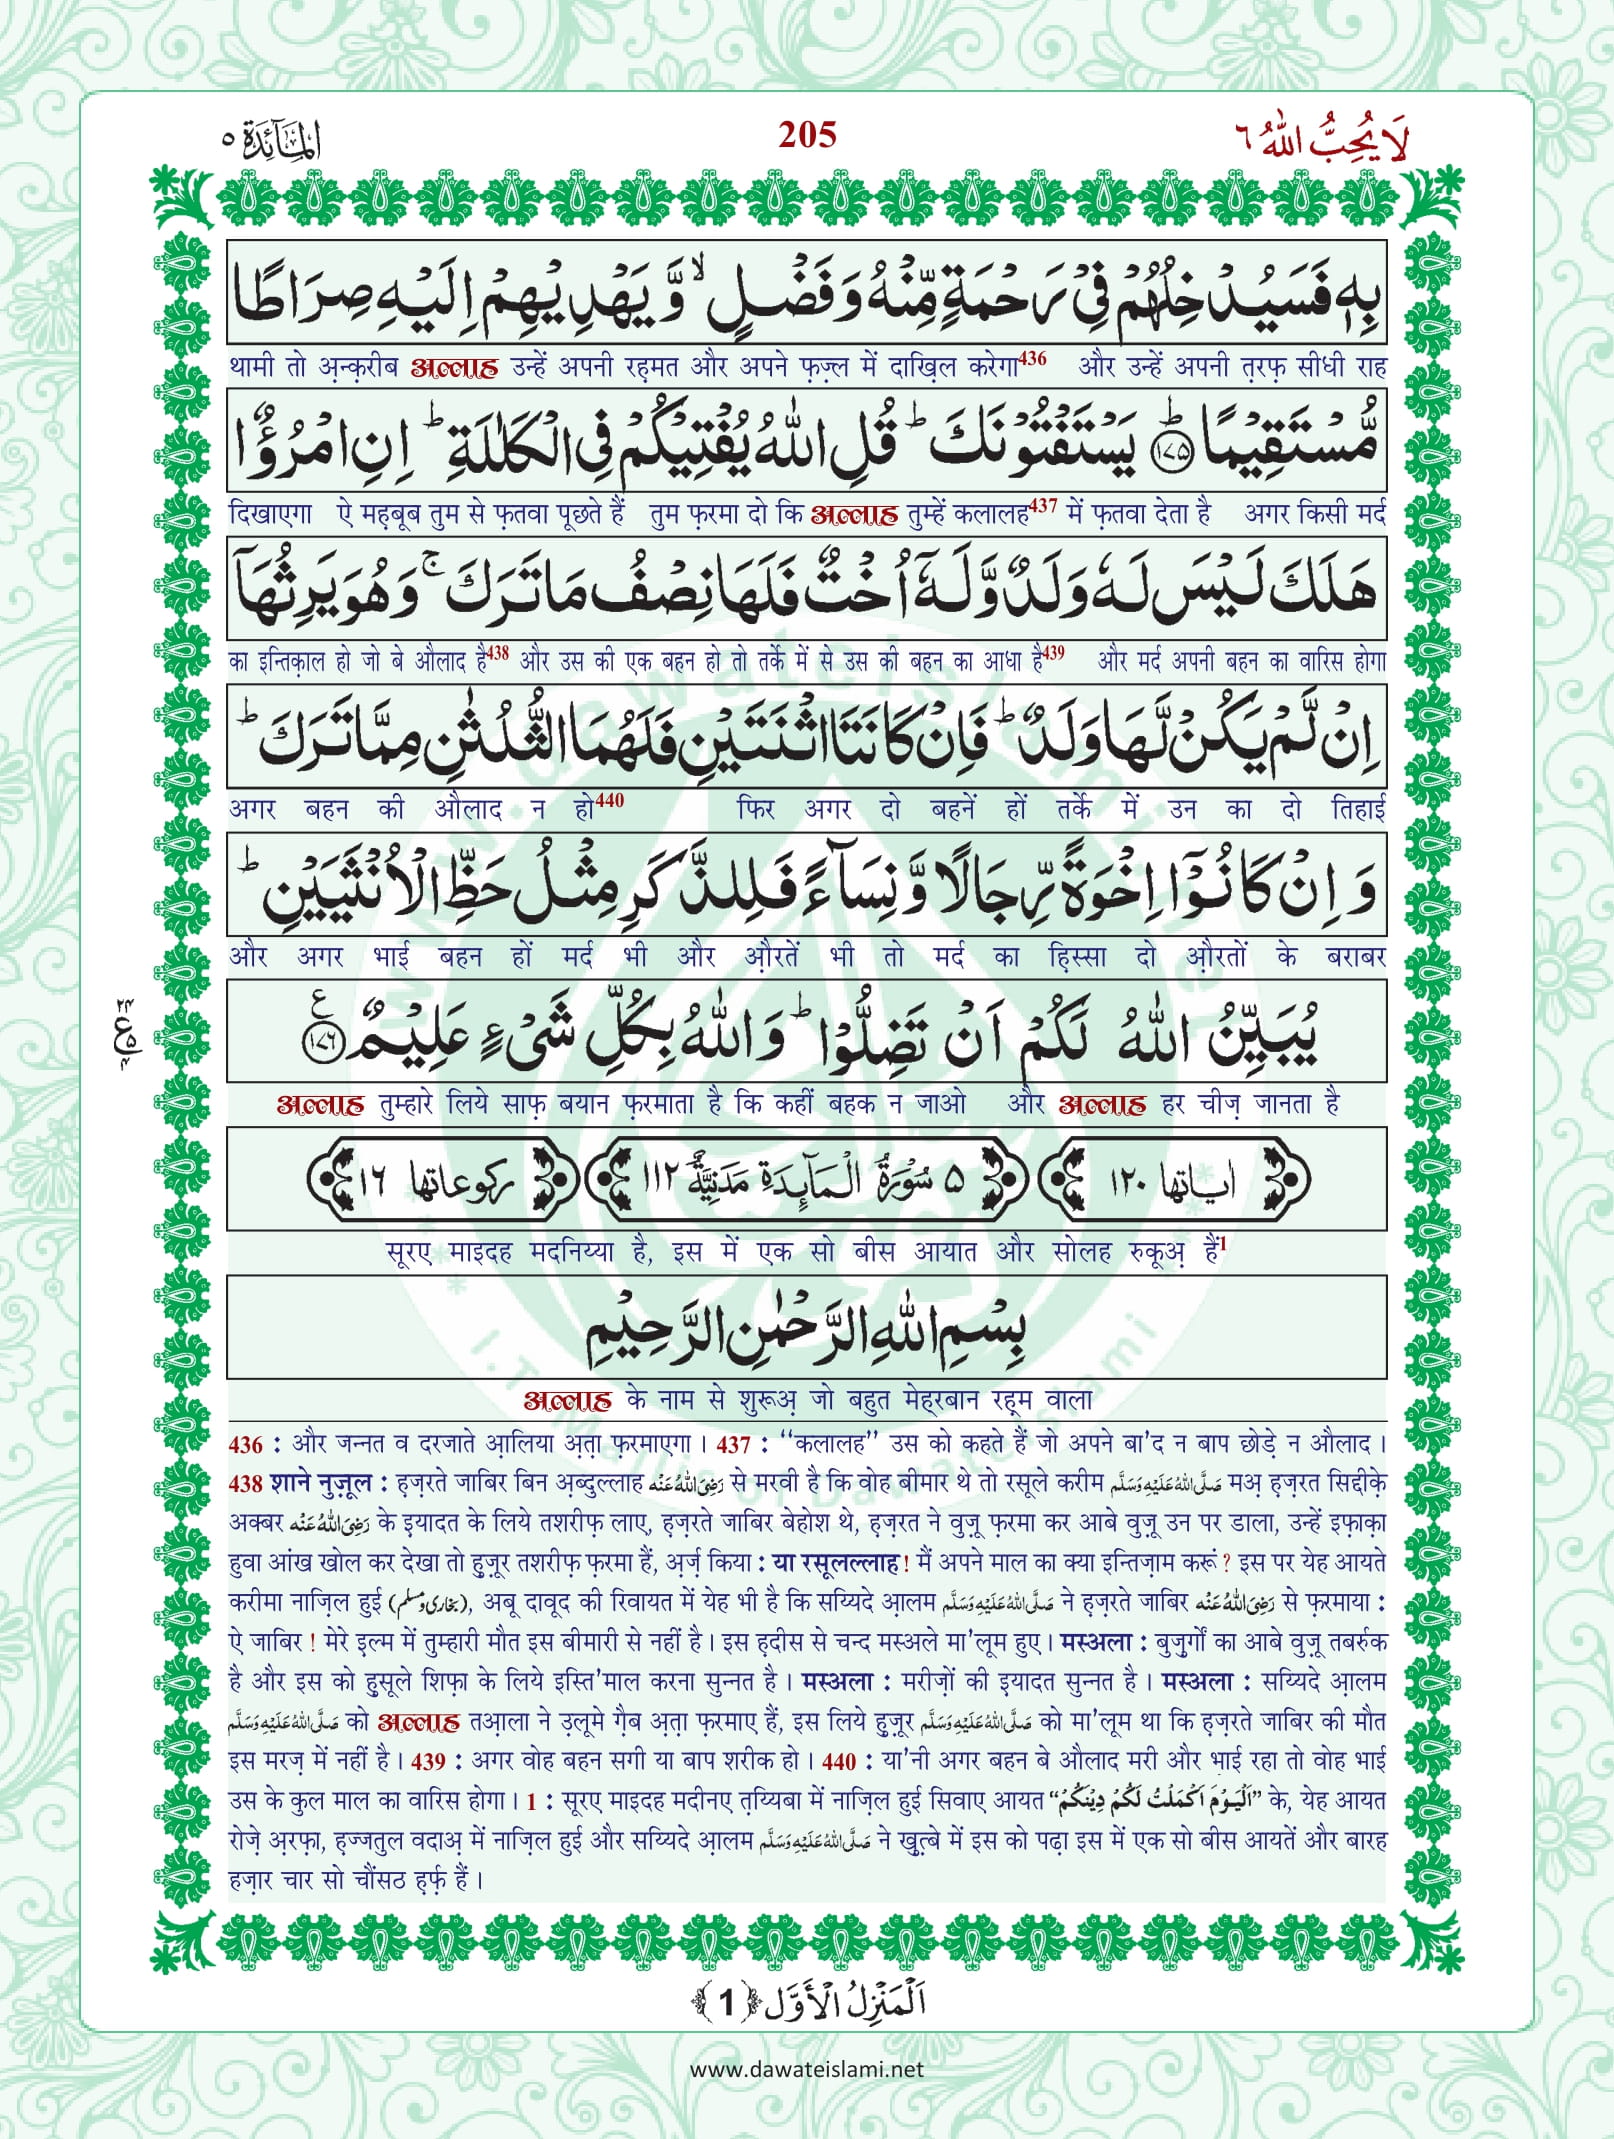 لَا يُحِبُّ اللّٰهُ ٦
205
الْمَآئِدَة ٥
بِهٖ فَسَيُدْخِلُهُمْ فِيْ رَحْمَةٍ مِّنْهُ وَفَضْلٍ ۙ وَّيَهْدِيْهِمْ اِلَيْهِ صِرَاطًا
थामी तो अ़न्क़रीब अल्लाह उन्हें अपनी रह़मत और अपने फ़ज़्ल में दाख़िल करेगा436 और उन्हें अपनी त़रफ़ सीधी राह
مُّسْتَقِيْمًا ؕ﴿۱۷۵﴾ يَسْتَفْتُوْنَكَ ؕ قُلِ اللّٰهُ يُفْتِيْكُمْ فِي الْكَلٰلَةِ ؕ اِنِ امْرُؤٌا
दिखाएगा ऐ मह़बूब तुम से फ़तवा पूछते हैं तुम फ़रमा दो कि अल्लाह तुम्हें कलालह437 में फ़तवा देता है अगर किसी मर्द
هَلَكَ لَيْسَ لَهٗ وَلَدٌ وَّلَهٗۤ اُخْتٌ فَلَهَا نِصْفُ مَا تَرَكَ ۚ وَهُوَ يَرِثُهَاۤ
का इन्तिक़ाल हो जो बे औलाद है438 और उस की एक बहन हो तो तर्के में से उस की बहन का आधा है439 और मर्द अपनी बहन का वारिस होगा
اِنْ لَّمْ يَكُنْ لَّهَا وَلَدٌ ؕ فَاِنْ كَانَتَا اثْنَتَيْنِ فَلَهُمَا الثُّلُثٰنِ مِمَّا تَرَكَ ؕ
अगर बहन की औलाद न हो440 फिर अगर दो बहनें हों तर्के में उन का दो तिहाई
وَ اِنْ كَانُوْۤا اِخْوَةً رِّجَالًا وَّنِسَآءً فَلِلذَّكَرِ مِثْلُ حَظِّ الْاُنْثَيَيْنِ ؕ
और अगर भाई बहन हों मर्द भी और औ़रतें भी तो मर्द का हि़स्सा दो औ़रतों के बराबर
يُبَيِّنُ اللّٰهُ لَكُمْ اَنْ تَضِلُّوْا ؕ وَاللّٰهُ بِكُلِّ شَيْءٍ عَلِيْمٌ ﴿۱۷۶﴾ ع
۲۴ ع ۵ ۴
अल्लाह तुम्हारे लिये साफ़ बयान फ़रमाता है कि कहीं बहक न जाओ और अल्लाह हर चीज़ जानता है
اٰياتها ١٢٠ ٥ سُوْرَةُ الْمَآئِدَةِ مَدَنِيَّةٌ ١١٢ ركوعاتها ١٦
सूरए माइदह मदनिय्या है, इस में एक सो बीस आयात और सोलह रुकूअ़ हैं1
بِسْمِ اللّٰهِ الرَّحْمٰنِ الرَّحِيْمِ
अल्लाह के नाम से शुरूअ़ जो बहुत मेह्रबान रह़्म वाला
436 : और जन्नत व दरजाते आ़लिया अ़त़ा फ़रमाएगा। 437 : ‘‘कलालह’’ उस को कहते हैं जो अपने बा’द न बाप छोड़े न औलाद।
438 शाने नुज़ूल : ह़ज़रते जाबिर बिन अ़ब्दुल्लाह رَضِیَ اللّٰهُ عَنْه से मरवी है कि वोह बीमार थे तो रसूले करीम صَلَّی اللّٰهُ عَلَیْهِ وَسَلَّم मअ़ ह़ज़रत सिद्दीक़े
अक्बर رَضِیَ اللّٰهُ عَنْه के इ़यादत के लिये तशरीफ़ लाए, ह़ज़रते जाबिर बेहोश थे, ह़ज़रत ने वुज़ू फ़रमा कर आबे वुज़ू उन पर डाला, उन्हें इफ़ाक़ा
हुवा आंख खोल कर देखा तो ह़ुज़ूर तशरीफ़ फ़रमा हैं, अ़र्ज़ किया : या रसूलल्लाह! मैं अपने माल का क्या इन्तिज़ाम करूं? इस पर येह आयते
करीमा नाज़िल हुई (بخاری ومسلم), अबू दावूद की रिवायत में येह भी है कि सय्यिदे आ़लम صَلَّی اللّٰهُ عَلَیْهِ وَسَلَّم ने ह़ज़रते जाबिर رَضِیَ اللّٰهُ عَنْه से फ़रमाया :
ऐ जाबिर! मेरे इ़ल्म में तुम्हारी मौत इस बीमारी से नहीं है। इस ह़दीस से चन्द मस्अले मा’लूम हुए। मस्अला : बुज़ुर्गों का आबे वुज़ू तबर्रुक
है और इस को ह़ुसूले शिफ़ा के लिये इस्ति’माल करना सुन्नत है। मस्अला : मरीज़ों की इ़यादत सुन्नत है। मस्अला : सय्यिदे आ़लम
صَلَّی اللّٰهُ عَلَیْهِ وَسَلَّم को अल्लाह तआ़ला ने उ़लूमे ग़ैब अ़त़ा फ़रमाए हैं, इस लिये ह़ुज़ूर صَلَّی اللّٰهُ عَلَیْهِ وَسَلَّم को मा’लूम था कि ह़ज़रते जाबिर की मौत
इस मरज़ में नहीं है। 439 : अगर वोह बहन सगी या बाप शरीक हो। 440 : या’नी अगर बहन बे औलाद मरी और भाई रहा तो वोह भाई
उस के कुल माल का वारिस होगा। 1 : सूरए माइदह मदीनए त़य्यिबा में नाज़िल हुई सिवाए आयत “اَلْیَوْمَ اَكْمَلْتُ لَكُمْ دِیْنَكُمْ” के, येह आयत
रोज़े अ़रफ़ा, ह़ज्जतुल वदाअ़ में नाज़िल हुई और सय्यिदे आ़लम صَلَّی اللّٰهُ عَلَیْهِ وَسَلَّم ने ख़ुत़्बे में इस को पढ़ा इस में एक सो बीस आयतें और बारह
हज़ार चार सो चौंसठ ह़र्फ़ हैं।
اَلْمَنْزِلُ الْاَوَّل ﴿1﴾
www.dawateislami.net